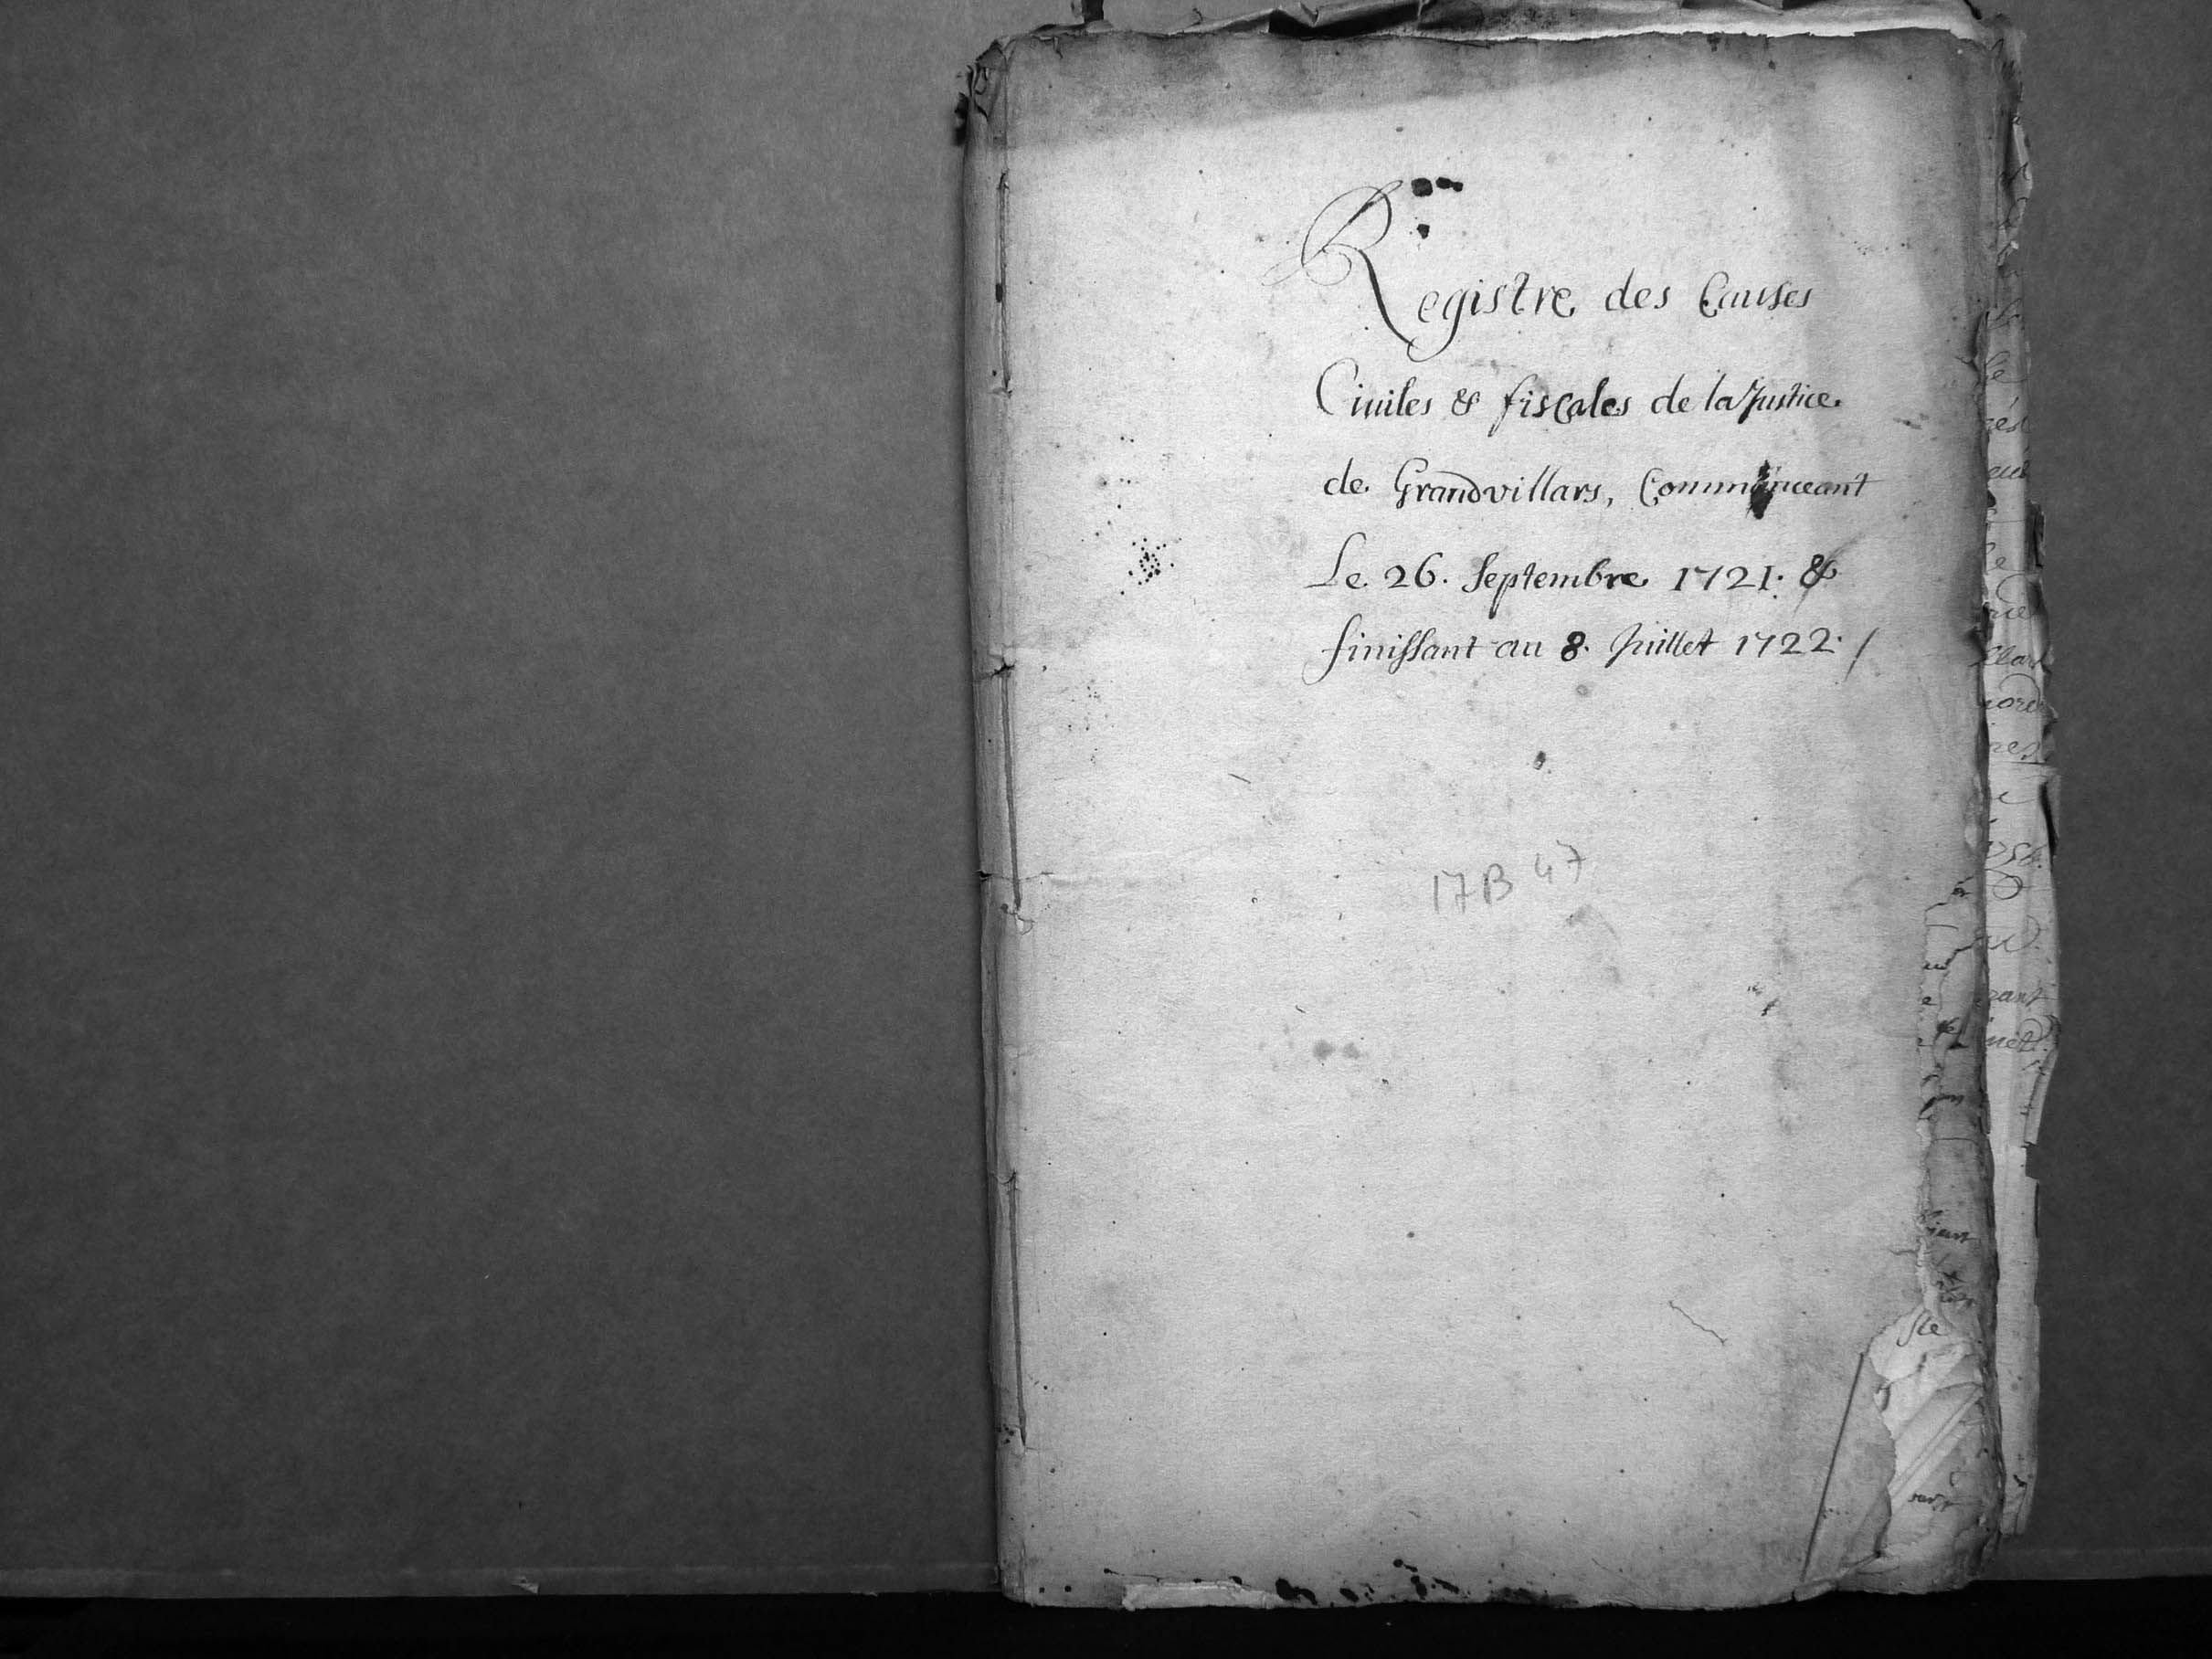 Registre des Causes
Ciuiles & fiscales de la Justice
de Grandvillars, Commenceant
Le 26. Septembre 1721. &
finissant au 8. Juillet 1722. /
17B 47